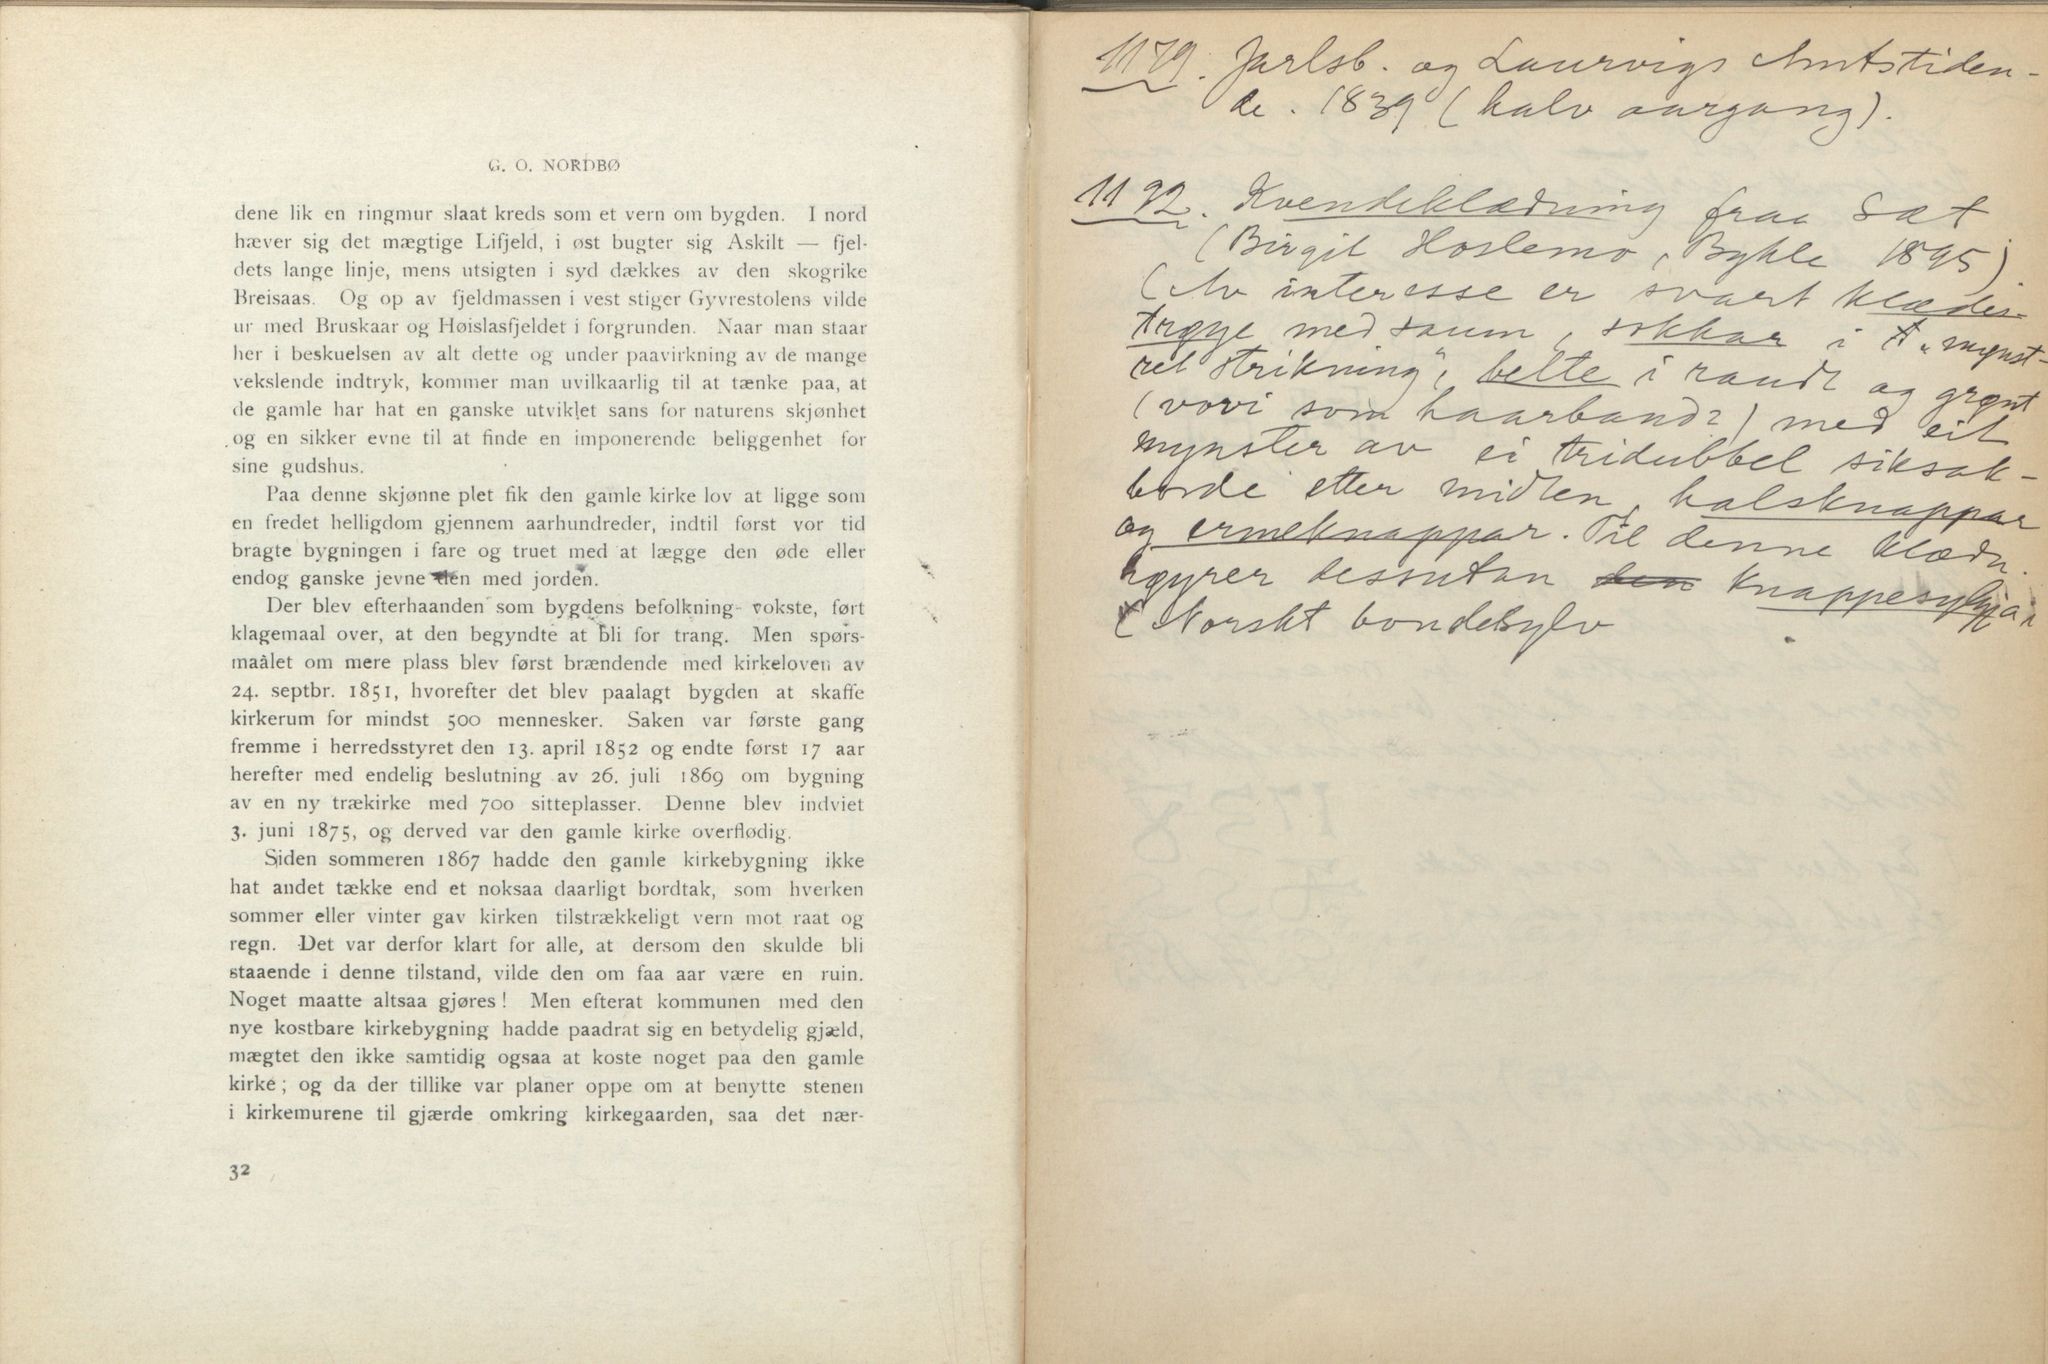 G. O. NORDBØ
dene lik en ringmur slaat kreds som et vern om bygden. I nord
hæver sig det mægtige Lifjeld, i øst bugter sig Askilt — fjel-
dets lange linje, mens utsigten i syd dækkes av den skogrike
Breisaas. Og op av fjeldmassen i vest stiger Gyvrestolens vilde
ur med Bruskaar og Høislasfjeldet i forgrunden. Naar man staar
her i beskuelsen av alt dette og under paavirkning av de mange
vekslende indtryk, kommer man uvilkaarlig til at tænke paa, at
de gamle har hat en ganske utviklet sans for naturens skjønhet
og en sikker evne til at finde en imponerende beliggenhet for
sine gudshus.
Paa denne skjønne plet fik den gamle kirke lov at ligge som
en fredet helligdom gjennem aarhundreder, indtil først vor tid
bragte bygningen i fare og truet med at lægge den øde eller
endog ganske jevne den med jorden.
Der blev efterhaanden som bygdens befolkning vokste, ført
klagemaal over, at den begyndte at bli for trang. Men spørs-
maålet om mere plass blev først brændende med kirkeloven av
24. septbr. 1851, hvorefter det blev paalagt bygden at skaffe
kirkerum for mindst 500 mennesker. Saken var første gang
fremme i herredsstyret den 13. april 1852 og endte først 17 aar
herefter med endelig beslutning av 26. juli 1869 om bygning
av en ny trækirke med 700 sitteplasser. Denne blev indviet
3. juni 1875, og derved var den gamle kirke overflødig.
Siden sommeren 1867 hadde den gamle kirkebygning ikke
hat andet tække end et noksaa daarligt bordtak, som hverken
sommer eller vinter gav kirken tilstrækkeligt vern mot raat og
regn. Det var derfor klart for alle, at dersom den skulde bli
staaende i denne tilstand, vilde den om faa aar være en ruin.
Noget maatte altsaa gjøres! Men efterat kommunen med den
nye kostbare kirkebygning hadde paadrat sig en betydelig gjæld,
mægtet den ikke samtidig ogsaa at koste noget paa den gamle
kirke; og da der tillike var planer oppe om at benytte stenen
i kirkemurene til gjærde omkring kirkegaarden, saa det nær-
32
1179. Jarlsb. og Laurvigs Amtstiden-
de. 1839 (halv aargang).
1192. Kvendeklædning fraa Sæt
(Birgit Hoslemo, Bykle 1895)
(Av interesse er svart klædes-
trøye med saum, sokkar i „mynst-
ret strikning", belte i raudt og grønt
(vovi som haarband) med eit
mynster av ei tridubbel siksak-
borde etter midten, halsknappar
og ermeknappar. Til denne klædn.
høyrer dessutan den knappesylgja i
(Norskt bondesylv